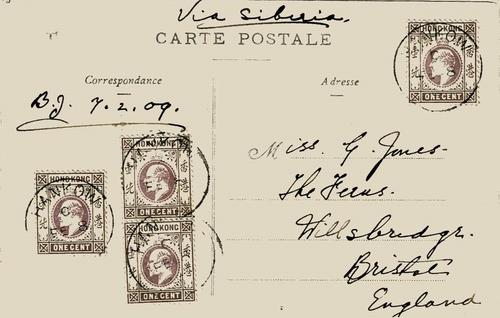 Via Siberia.
CARTE POSTALE
Correspondance
Adresse
B.J. 7.2.09.
Miss. G. Jones.
The Ferns.
Willsbridge.
Bristol
England
HONG KONG
ONE CENT
HANKOW
HONG KONG
ONE CENT
HONG KONG
ONE CENT
HONG KONG
ONE CENT
HANKOW